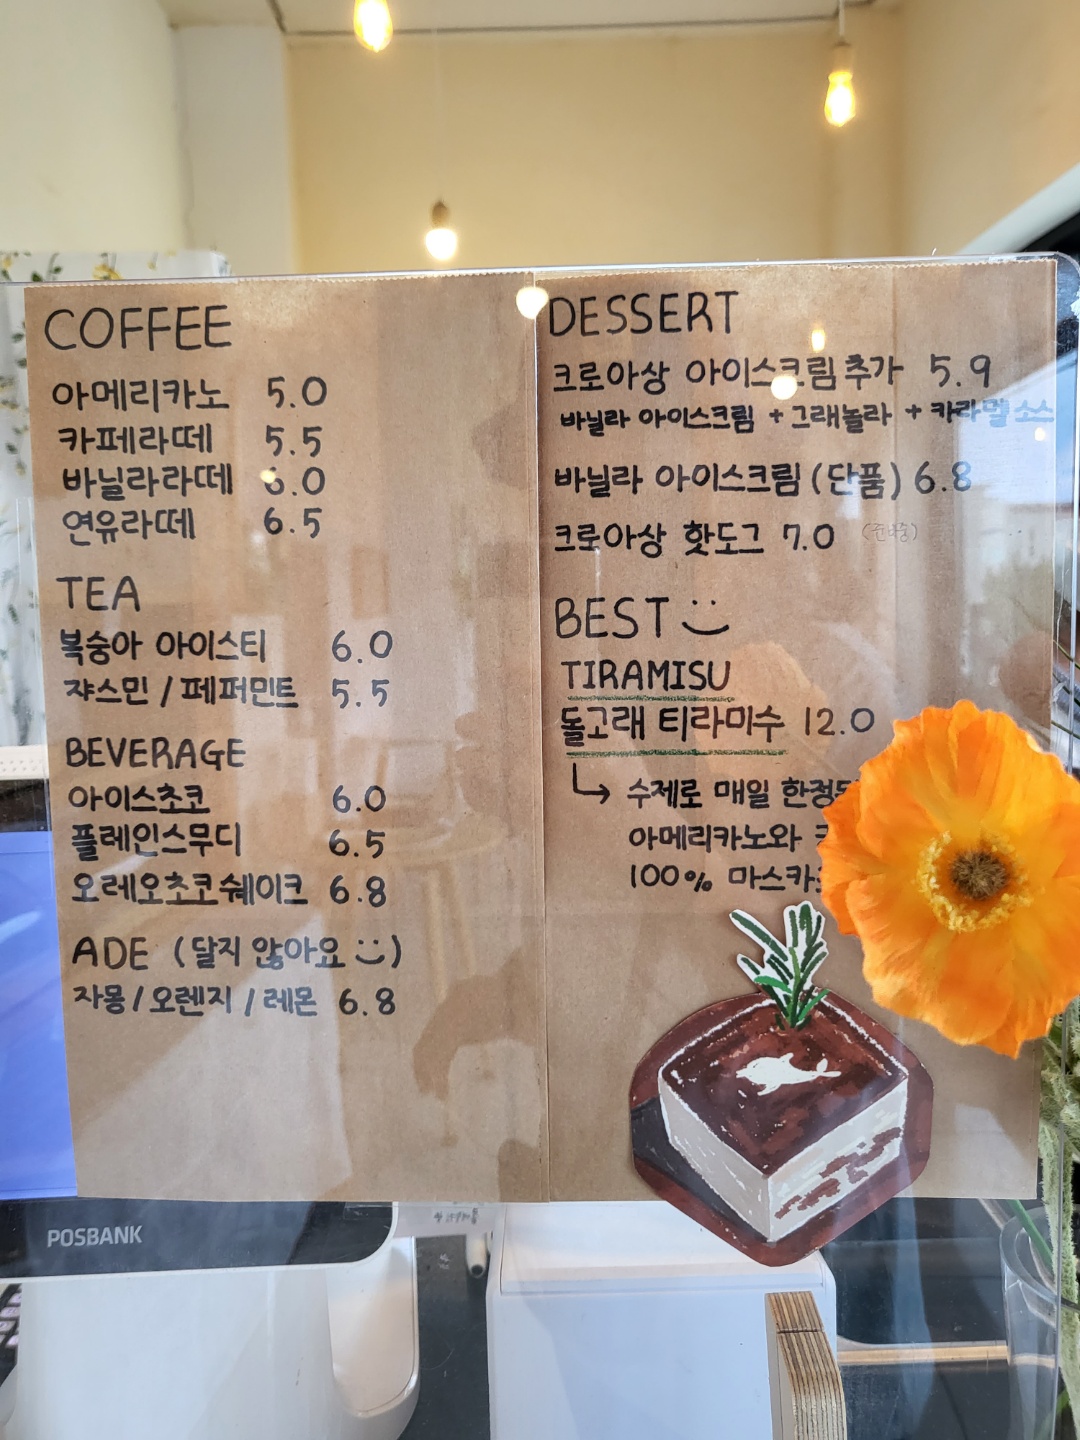 COFFEE
아메리카노 5.0
카페라떼 5.5
바닐라라떼 6.0
연유라떼 6.5
TEA
복숭아 아이스티 6.0
쟈스민 / 페퍼민트 5.5
BEVERAGE
아이스초코 6.0
플레인스무디 6.5
오레오초코쉐이크 6.8
ADE (달지 않아요 :))
자몽 / 오렌지 / 레몬 6.8
DESSERT
크로아상 아이스크림 추가 5.9
바닐라 아이스크림 + 그래놀라 + 카라멜 소스
바닐라 아이스크림 (단품) 6.8
크로아상 핫도그 7.0 (준비중)
BEST :)
TIRAMISU
돌고래 티라미수 12.0
↳ 수제로 매일 한정
아메리카노와
100% 마스카
POSBANK